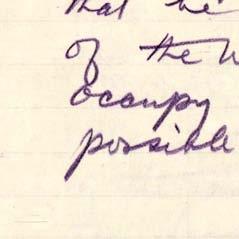 that he
of the W
occupy
possible